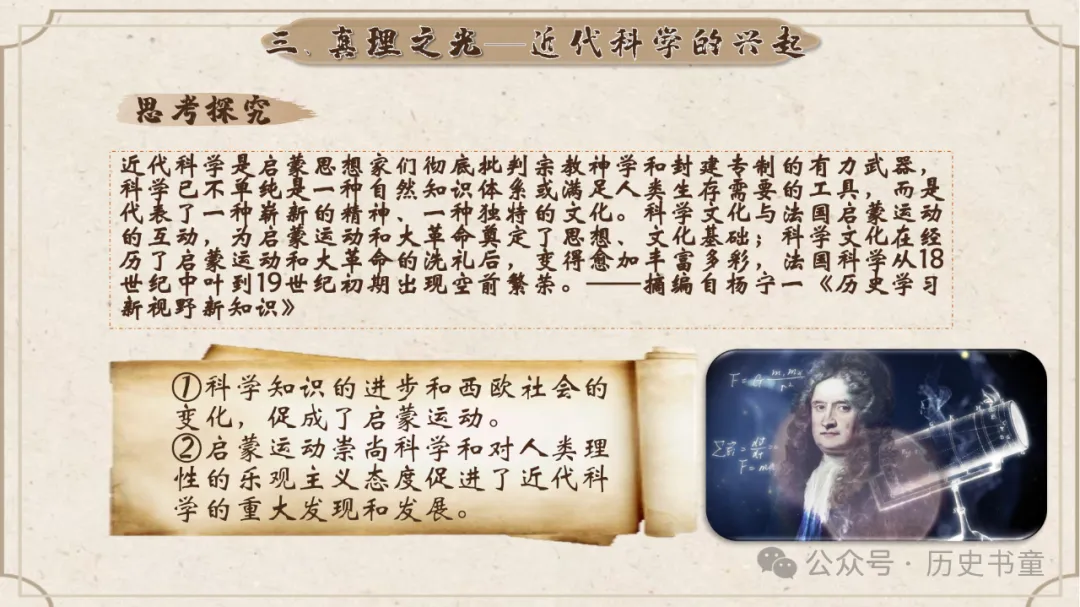 三、真理之光—近代科学的兴起
思考探究
近代科学是启蒙思想家们彻底批判宗教神学和封建专制的有力武器，
科学已不单纯是一种自然知识体系或满足人类生存需要的工具，而是
代表了一种崭新的精神、一种独特的文化。科学文化与法国启蒙运动
的互动，为启蒙运动和大革命奠定了思想、文化基础；科学文化在经
历了启蒙运动和大革命的洗礼后，变得愈加丰富多彩，法国科学从18
世纪中叶到19世纪初期出现空前繁荣。——摘编自杨宁一《历史学习
新视野新知识》
①科学知识的进步和西欧社会的
变化，促成了启蒙运动。
②启蒙运动崇尚科学和对人类理
性的乐观主义态度促进了近代科
学的重大发现和发展。
公众号·历史书童